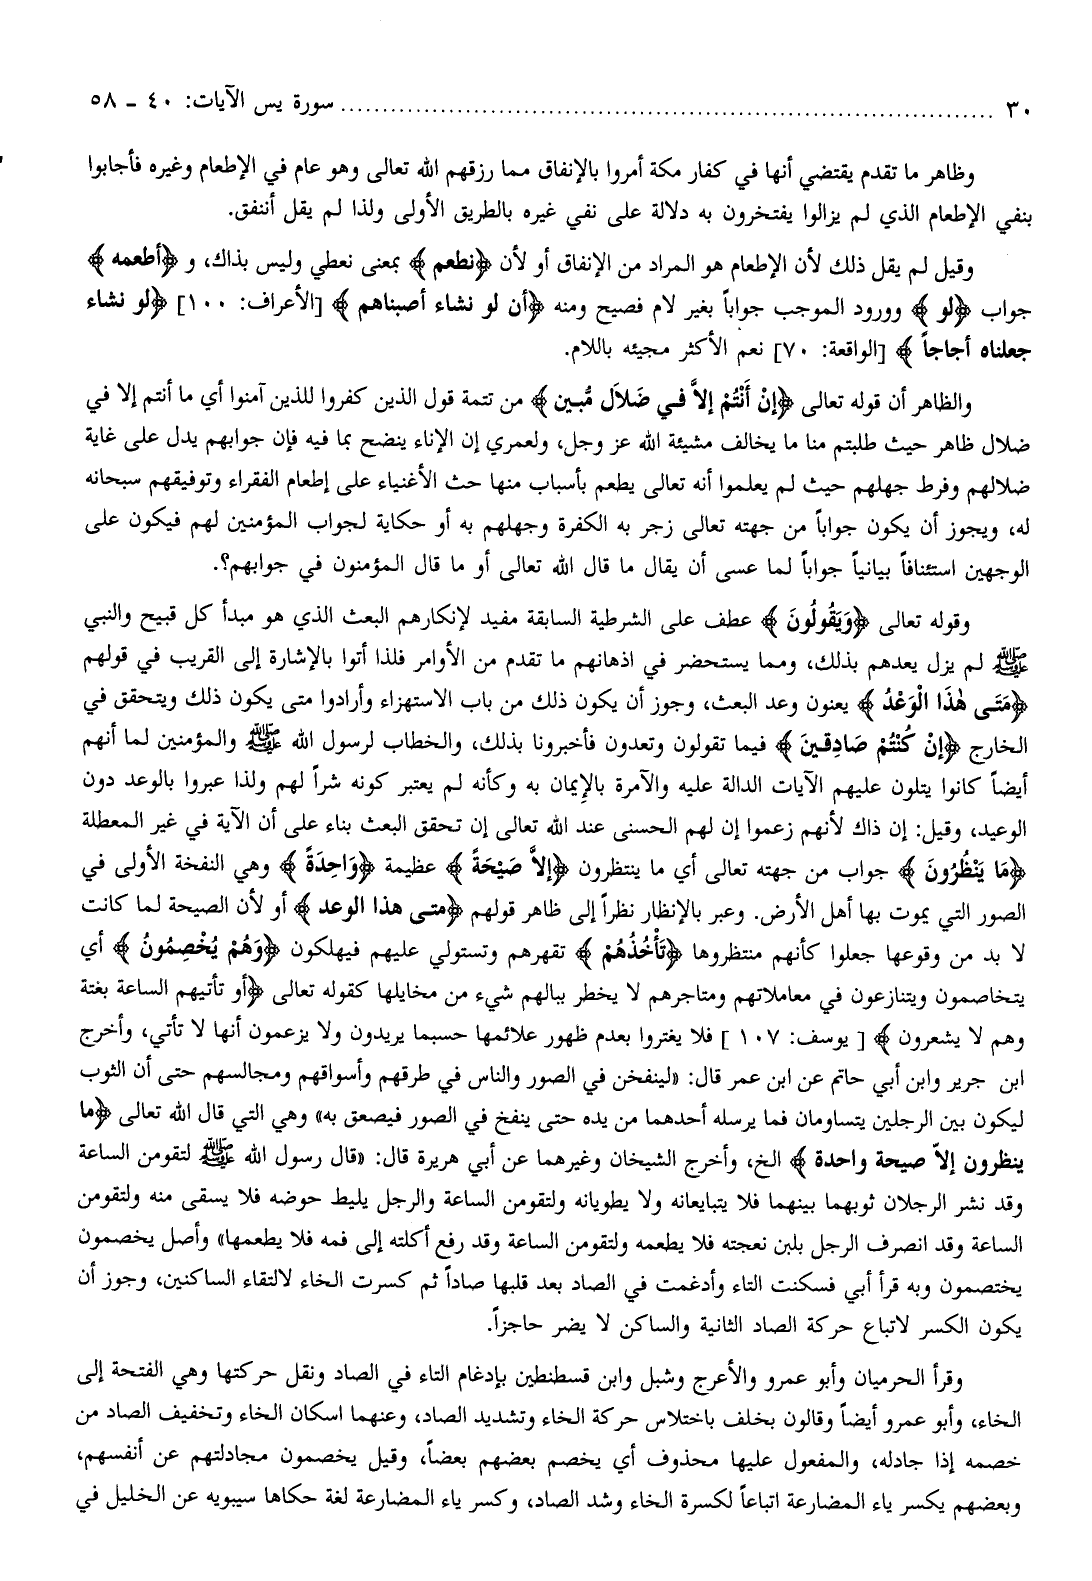 ٣٠ ........................................................................ سورة يس الآيات: ٤٠ ـ ٥٨
وظاهر ما تقدم يقتضي أنها في كفار مكة أمروا بالإنفاق مما رزقهم الله تعالى وهو عام في الإطعام وغيره فأجابوا
بنفي الإطعام الذي لم يزالوا يفتخرون به دلالة على نفي غيره بالطريق الأولى ولذا لم يقل أننفق.
وقيل لم يقل ذلك لأن الإطعام هو المراد من الإنفاق أو لأن ﴿نطعم﴾ بمعنى نعطي وليس بذاك، و ﴿أطعمه﴾
جواب ﴿لو﴾ وورود الموجب جواباً بغير لام فصيح ومنه ﴿أن لو نشاء أصبناهم﴾ [الأعراف: ١٠٠] ﴿لو نشاء
جعلناه أجاجاً﴾ [الواقعة: ٧٠] نعم الأكثر مجيئه باللام.
والظاهر أن قوله تعالى ﴿إنْ أَنْتُمْ إلاَّ فـي ضَلاَل مُّبـين﴾ من تتمة قول الذين كفروا للذين آمنوا أي ما أنتم إلا في
ضلال ظاهر حيث طلبتم منا ما يخالف مشيئة الله عز وجل، ولعمري إن الإناء ينضح بما فيه فإن جوابهم يدل على غاية
ضلالهم وفرط جهلهم حيث لم يعلموا أنه تعالى يطعم بأسباب منها حث الأغنياء على إطعام الفقراء وتوفيقهم سبحانه
له، ويجوز أن يكون جواباً من جهته تعالى زجر به الكفرة وجهلهم به أو حكاية لجواب المؤمنين لهم فيكون على
الوجهين استئنافاً بيانياً جواباً لما عسى أن يقال ما قال الله تعالى أو ما قال المؤمنون في جوابهم؟.
وقوله تعالى ﴿وَيَقُولُونَ﴾ عطف على الشرطية السابقة مفيد لإنكارهم البعث الذي هو مبدأ كل قبيح والنبي
ﷺ لم يزل يعدهم بذلك، ومما يستحضر في اذهانهم ما تقدم من الأوامر فلذا أتوا بالإشارة إلى القريب في قولهم
﴿مَتَـى هٰذَا الْوَعْدُ﴾ يعنون وعد البعث، وجوز أن يكون ذلك من باب الاستهزاء وأرادوا متى يكون ذلك ويتحقق في
الخارج ﴿إنْ كُنْتُمْ صَادِقـينَ﴾ فيما تقولون وتعدون فأخبرونا بذلك، والخطاب لرسول الله ﷺ والمؤمنين لما أنهم
أيضاً كانوا يتلون عليهم الآيات الدالة عليه والآمرة بالإيمان به وكأنه لم يعتبر كونه شراً لهم ولذا عبروا بالوعد دون
الوعيد، وقيل: إن ذاك لأنهم زعموا إن لهم الحسنى عند الله تعالى إن تحقق البعث بناء على أن الآية في غير المعطلة
﴿مَا يَنْظُرُونَ﴾ جواب من جهته تعالى أي ما ينتظرون ﴿إلاَّ صَيْحَةً﴾ عظيمة ﴿وَاحِدَةً﴾ وهي النفخة الأولى في
الصور التي يموت بها أهل الأرض. وعبر بالإنظار نظراً إلى ظاهر قولهم ﴿متـى هذا الوعد﴾ أو لأن الصيحة لما كانت
لا بد من وقوعها جعلوا كأنهم منتظروها ﴿تَأْخُذُهُمْ﴾ تقهرهم وتستولي عليهم فيهلكون ﴿وَهُمْ يُخْصِمُونُ﴾ أي
يتخاصمون ويتنازعون في معاملاتهم ومتاجرهم لا يخطر ببالهم شيء من مخايلها كقوله تعالى ﴿أو تأتيهم الساعة بغتة
وهم لا يشعرون﴾ [ يوسف: ١٠٧ ] فلا يغتروا بعدم ظهور علائمها حسبما يريدون ولا يزعمون أنها لا تأتي، وأخرج
ابن جرير وابن أبي حاتم عن ابن عمر قال: «لينفخن في الصور والناس في طرقهم وأسواقهم ومجالسهم حتى أن الثوب
ليكون بين الرجلين يتساومان فما يرسله أحدهما من يده حتى ينفخ في الصور فيصعق به» وهي التي قال الله تعالى ﴿ما
ينظرون إلاّ صيحة واحدة﴾ الخ، وأخرج الشيخان وغيرهما عن أبي هريرة قال: «قال رسول الله ﷺ لتقومن الساعة
وقد نشر الرجلان ثوبهما بينهما فلا يتبايعانه ولا يطويانه ولتقومن الساعة والرجل يليط حوضه فلا يسقى منه ولتقومن
الساعة وقد انصرف الرجل بلبن نعجته فلا يطعمه ولتقومن الساعة وقد رفع أكلته إلى فمه فلا يطعمها» وأصل يخصمون
يختصمون وبه قرأ أبي فسكنت التاء وأدغمت في الصاد بعد قلبها صاداً ثم كسرت الخاء لالتقاء الساكنين، وجوز أن
يكون الكسر لاتباع حركة الصاد الثانية والساكن لا يضر حاجزاً.
وقرأ الحرميان وأبو عمرو والأعرج وشبل وابن قسطنطين بإدغام التاء في الصاد ونقل حركتها وهي الفتحة إلى
الخاء، وأبو عمرو أيضاً وقالون بخلف باختلاس حركة الخاء وتشديد الصاد، وعنهما اسكان الخاء وتخفيف الصاد من
خصمه إذا جادله، والمفعول عليها محذوف أي يخصم بعضهم بعضاً، وقيل يخصمون مجادلتهم عن أنفسهم،
وبعضهم يكسر ياء المضارعة اتباعاً لكسرة الخاء وشد الصاد، وكسر ياء المضارعة لغة حكاها سيبويه عن الخليل في